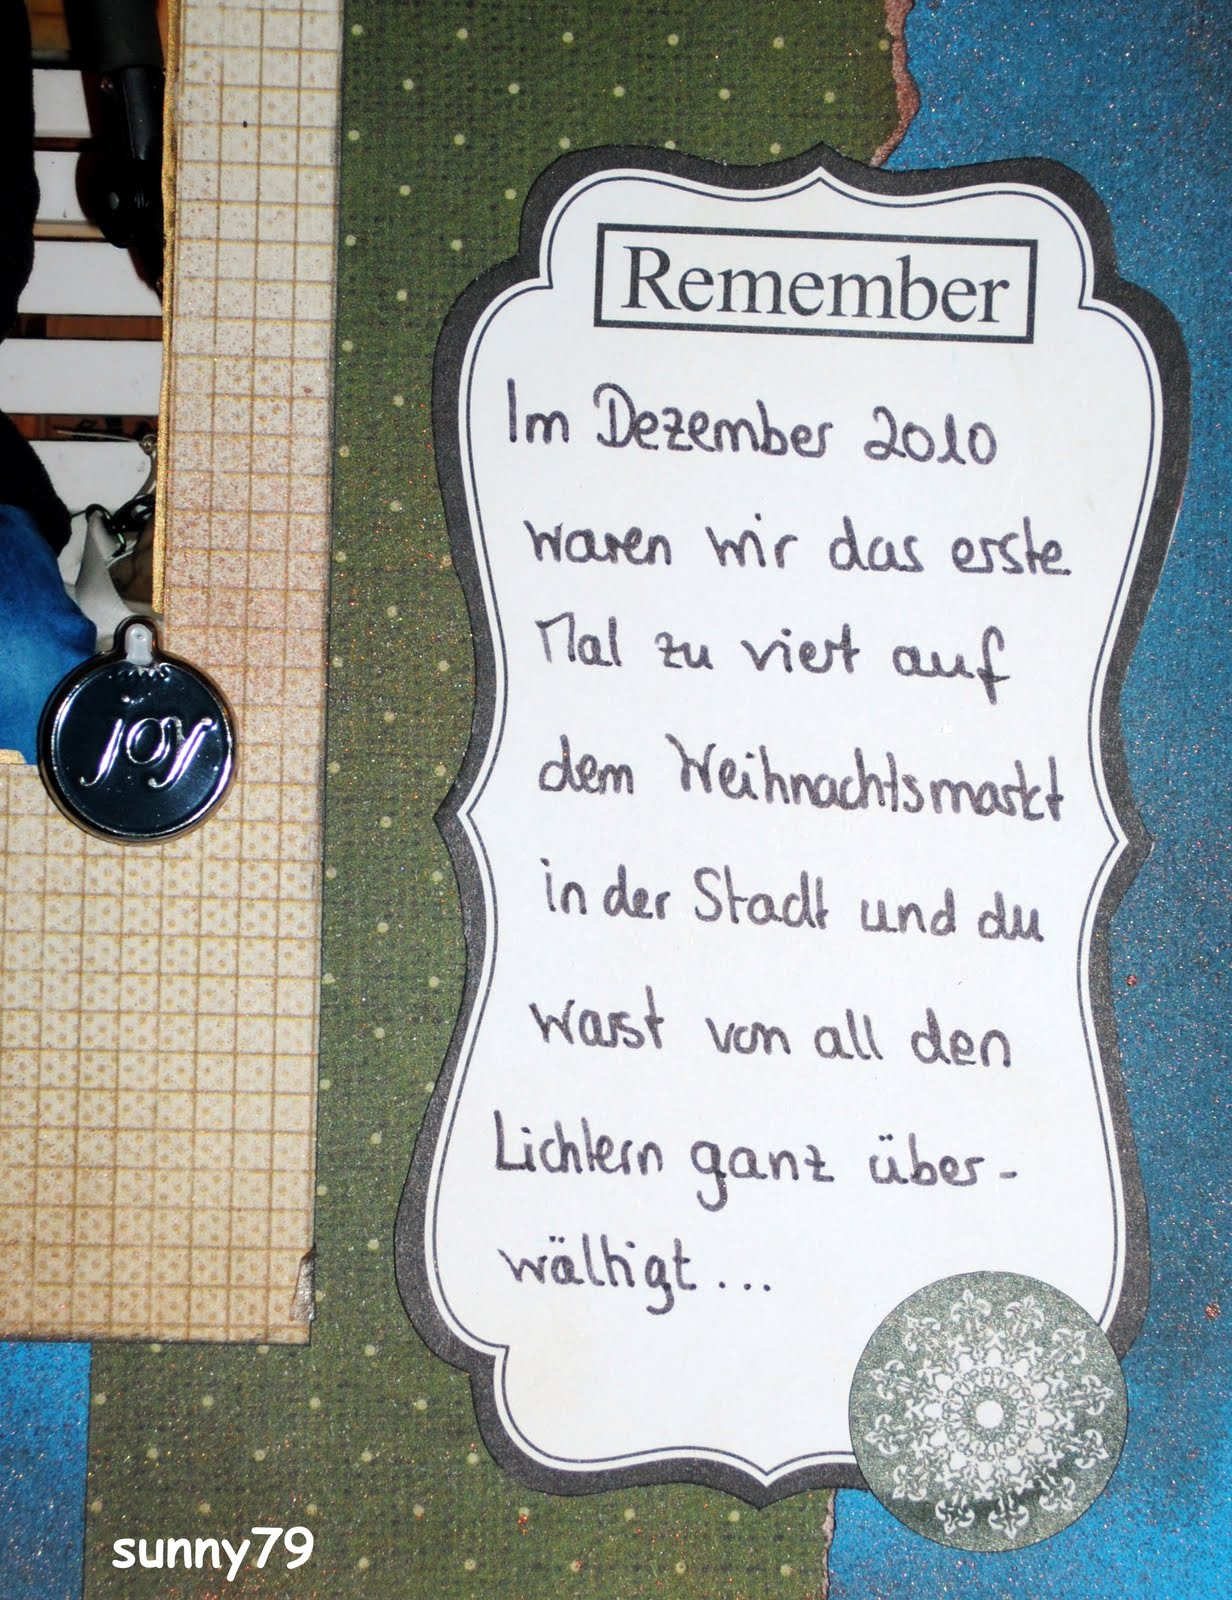 Remember
Im Dezember 2010
waren wir das erste
Mal zu viert auf
dem Weihnachtsmarkt
in der Stadt und du
warst von all den
Lichtern ganz über-
wältigt...
joy
sunny79